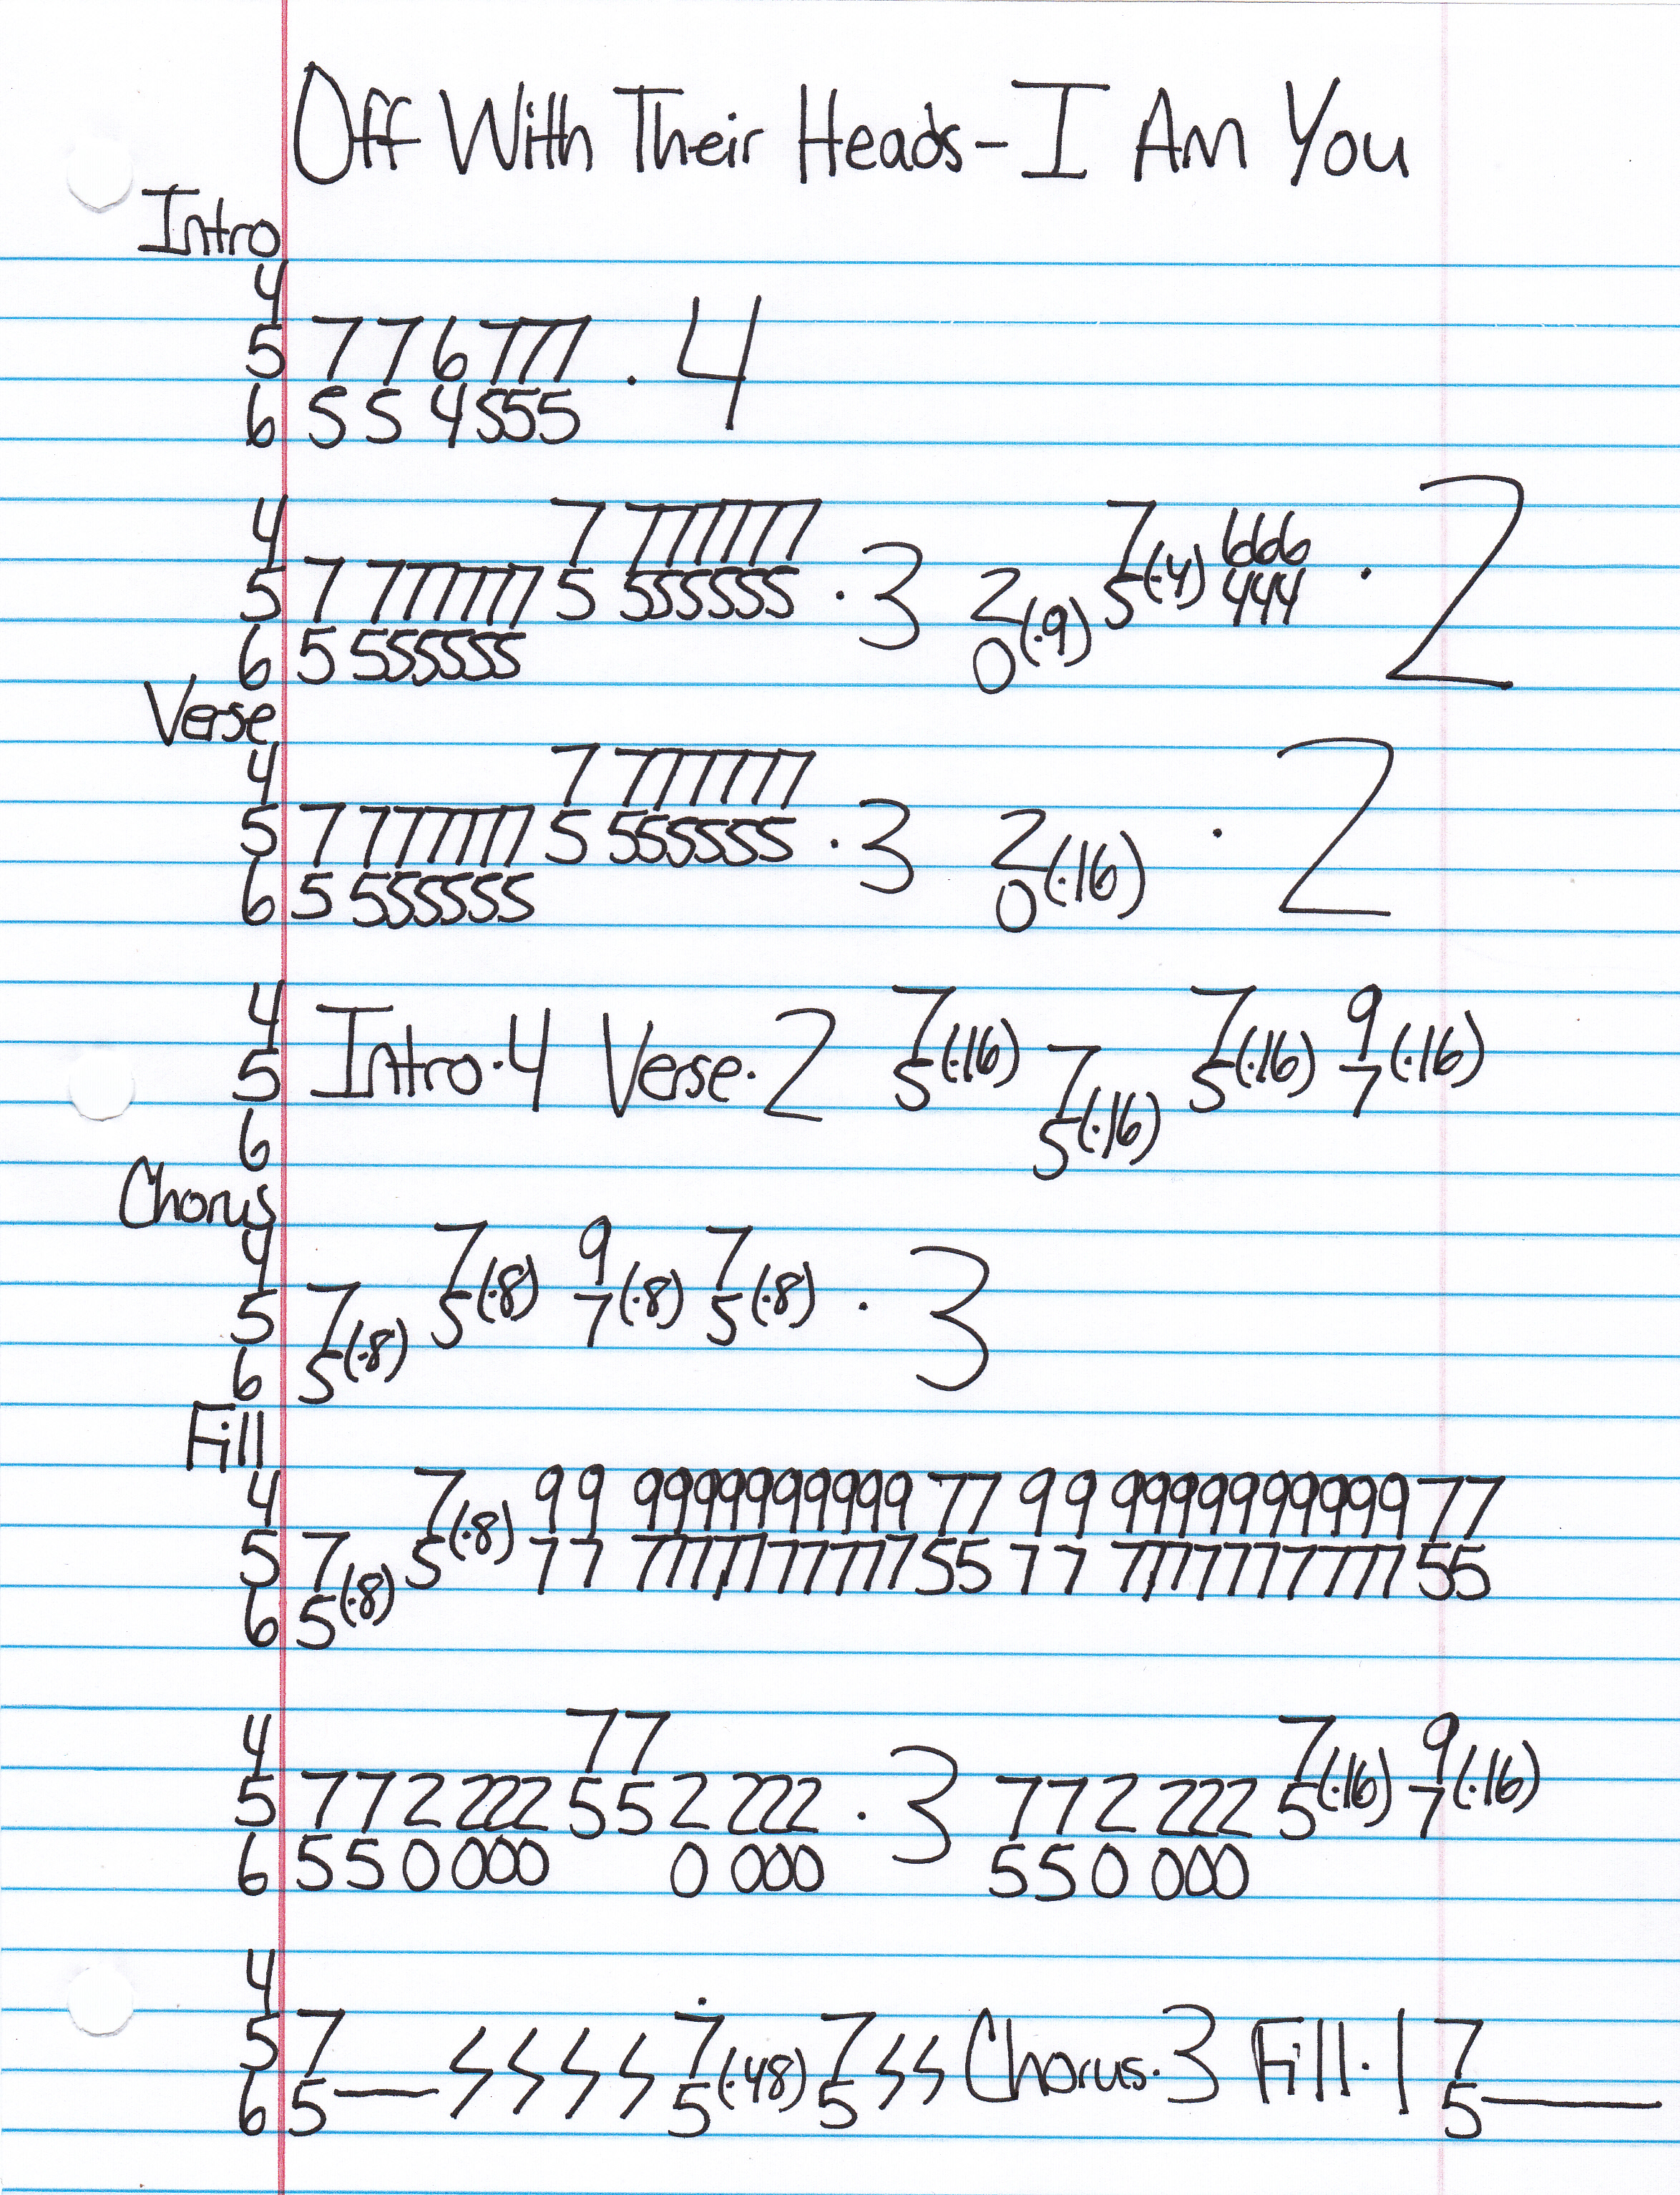 Off With Their Heads - I Am You
Intro
4
5 7 7 6 777 · 4
6 5 5 4 555
4 7 777777 7 666
5 7 777777 5 555555 · 3 2 (·9) 5 (·4) 444 · 2
6 5 555555 0
Verse
4 7 777777
5 7 777777 5 555555 · 3 2 (·16) · 2
6 5 555555 0
4 7 7 9
5 Intro·4 Verse·2 5 (·16) 7 5 (·16) 7 (·16)
6 5 (·16)
Chorus
4 7 9 7
5 7 5 (·8) 7 (·8) 5 (·8) · 3
6 5 (·8)
Fill
4 7 99 9999999999 77 99 9999999999 77
5 7 5 (·8) 77 7777777777 55 77 7777777777 55
6 5 (·8)
4 77 7 9
5 772 222 552 222 · 3 772 222 5 (·16) 7 (·16)
6 550 000 0 000 550 000
4
5 7 7 7 Chorus·3 Fill·1 7
6 5 5 (·48) 5 5